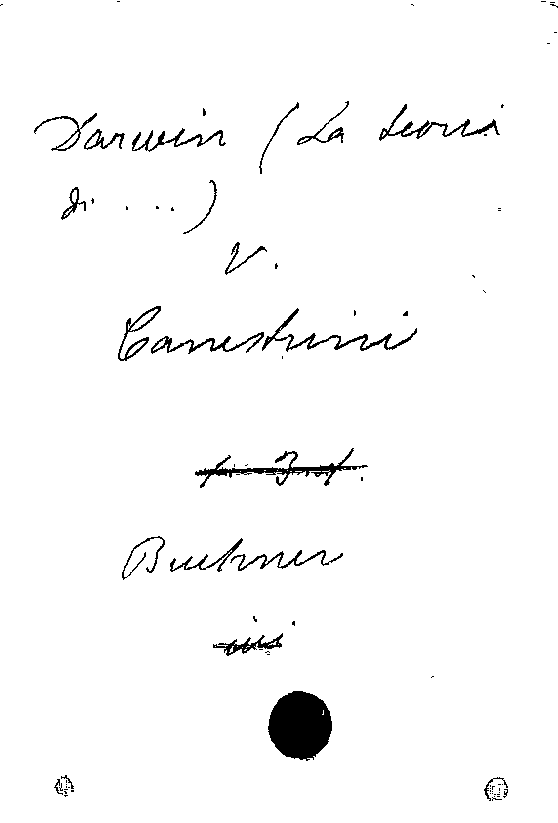 Darwin (La teoria
di ...)
V.
Canestrini
Buchner